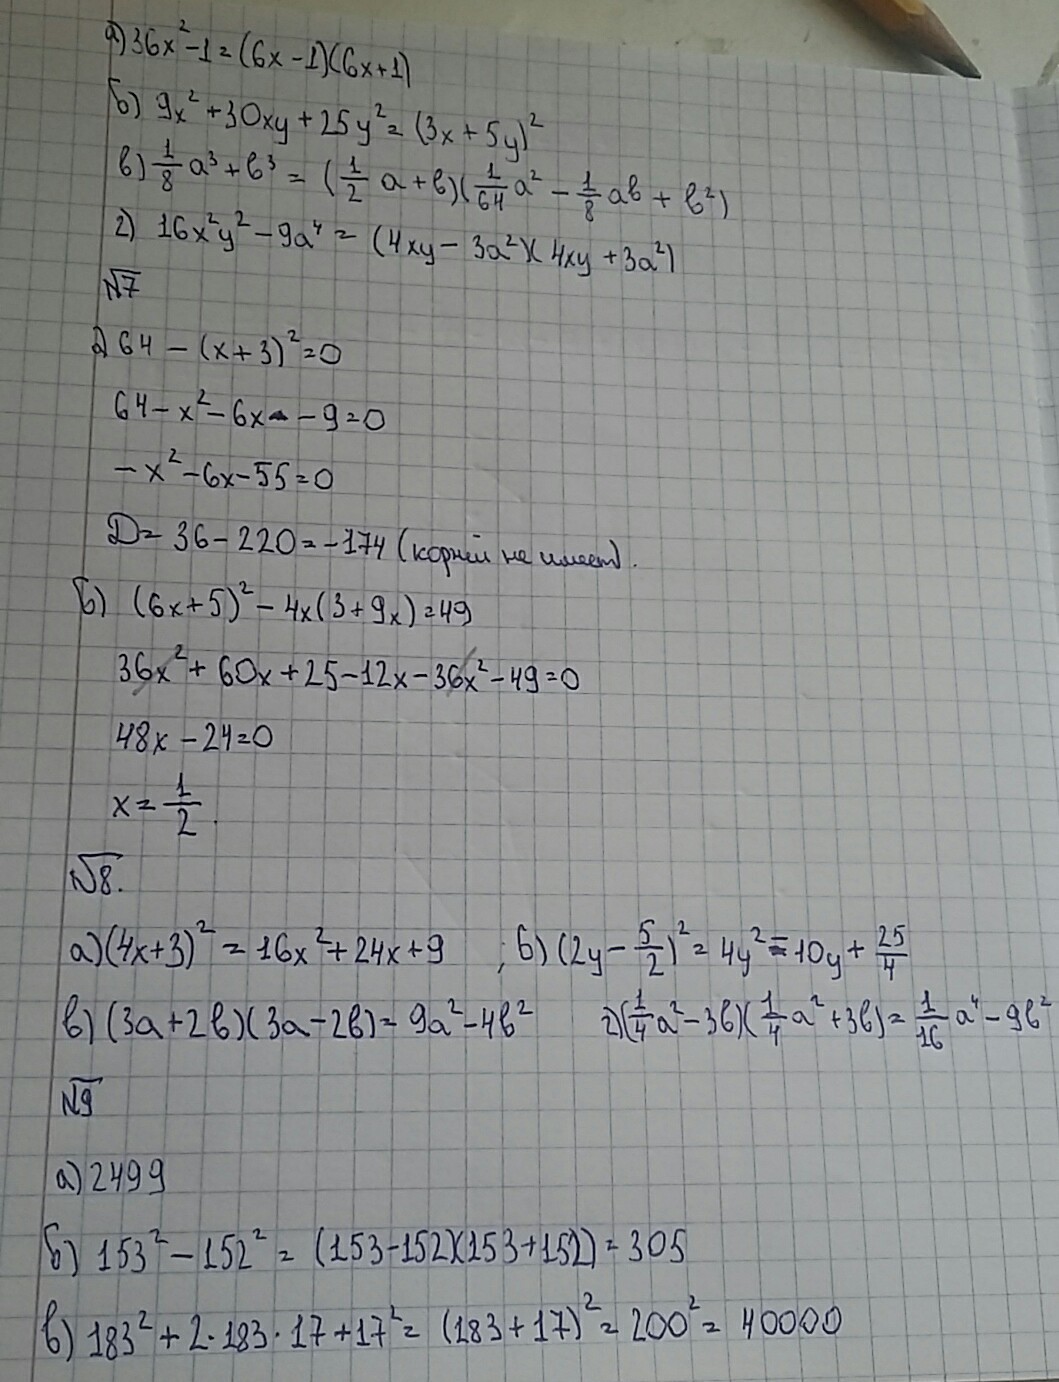 а) 36x² - 1 = (6x - 1)(6x + 1)
б) 9x² + 30xy + 25y² = (3x + 5y)²
в) 1/8 a³ + b³ = (1/2 a + b)(1/64 a² - 1/8 ab + b²)
г) 16x²y² - 9a⁴ = (4xy - 3a²)(4xy + 3a²)
№7
а) 64 - (x + 3)² = 0
64 - x² - 6x - 9 = 0
- x² - 6x - 55 = 0
D = 36 - 220 = -174 (корней не имеет).
б) (6x + 5)² - 4x(3 + 9x) = 49
36x² + 60x + 25 - 12x - 36x² - 49 = 0
48x - 24 = 0
x = 1/2.
№8.
а) (4x + 3)² = 16x² + 24x + 9 ; б) (2y - 5/2)² = 4y² - 10y + 25/4
в) (3a + 2b)(3a - 2b) = 9a² - 4b² г) (1/4 a² - 3b)(1/4 a² + 3b) = 1/16 a⁴ - 9b²
№9
а) 2499
б) 153² - 152² = (153 - 152)(153 + 152) = 305
в) 183² + 2·183·17 + 17² = (183 + 17)² = 200² = 40000